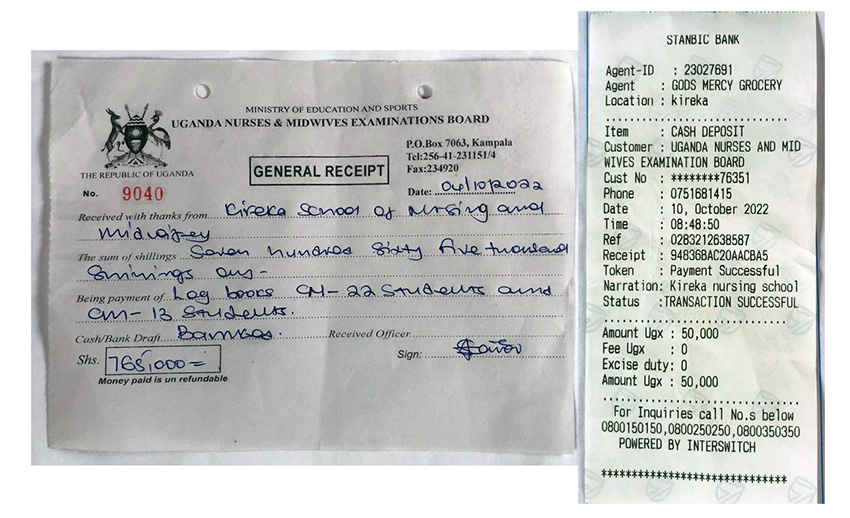 MINISTRY OF EDUCATION AND SPORTS
UGANDA NURSES & MIDWIVES EXAMINATIONS BOARD
P.O.Box 7063, Kampala
Tel:256-41-231151/4
Fax:234920
THE REPUBLIC OF UGANDA
GENERAL RECEIPT
No. 9040
Date: 04/10/2022
Received with thanks from Kireka School of Nursing and
Midwifery
The sum of shillings Seven hundred Sixty five thousand
Shillings only-
Being payment of Log books CN-22 Students and
CM-13 Students.
Cash/Bank Draft Banked. Received Officer
Shs. 765,000=
Sign:
Money paid is un refundable
STANBIC BANK
Agent-ID : 23027691
Agent : GODS MERCY GROCERY
Location : kireka
Item : CASH DEPOSIT
Customer : UGANDA NURSES AND MID
WIVES EXAMINATION BOARD
Cust No : ********76351
Phone : 0751681415
Date : 10, October 2022
Time : 08:48:50
Ref : 0283212638587
Receipt : 94836BAC20AACBA5
Token : Payment Successful
Narration: Kireka nursing school
Status :TRANSACTION SUCCESSFUL
Amount Ugx : 50,000
Fee Ugx : 0
Excise duty: 0
Amount Ugx : 50,000
For Inquiries call No.s below
0800150150,0800250250,0800350350
POWERED BY INTERSWITCH
******************************